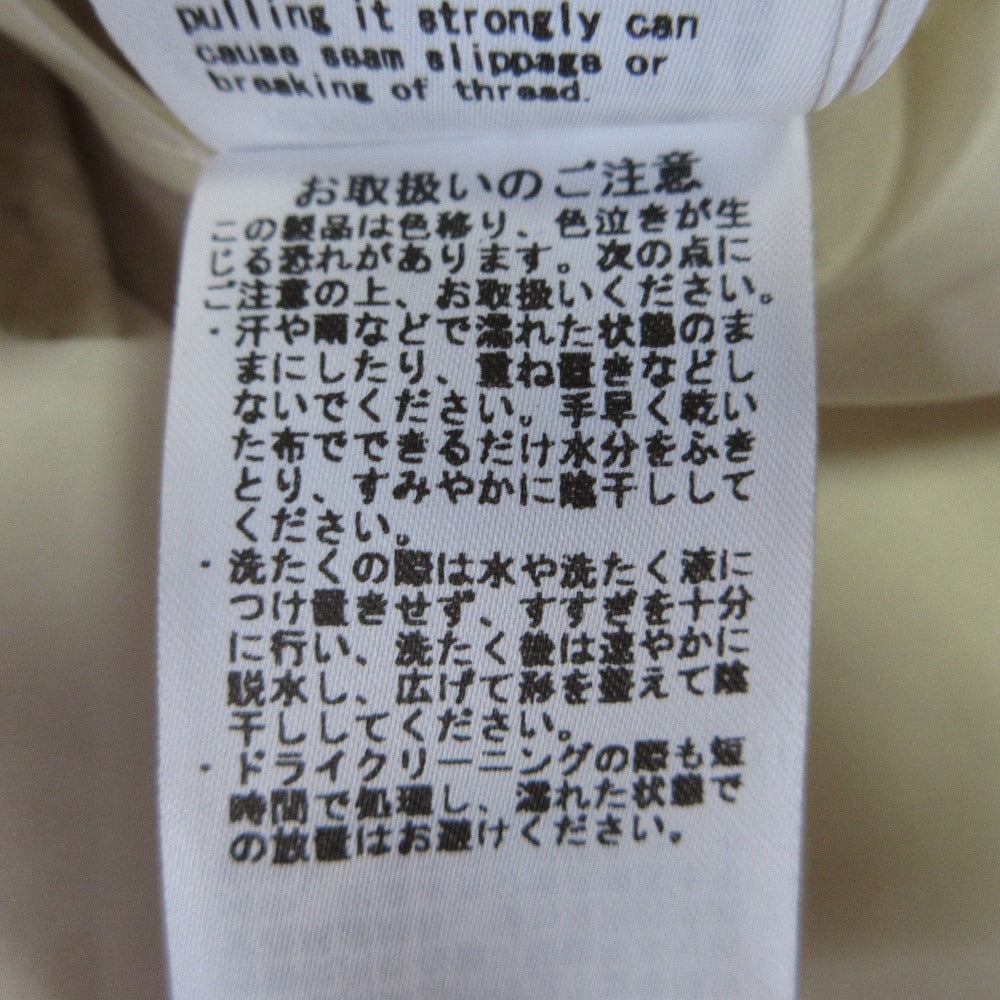 pulling it strongly can
cause seam slippage or
breaking of thread.
お取扱いのご注意
この製品は色移り、色泣きが生
じる恐れがあります。次の点に
ご注意の上、お取扱いください。
・汗や雨などで濡れた状態のま
まにしたり、重ね置きなどし
ないでください。手早く乾い
た布でできるだけ水分をふき
とり、すみやかに陰干しして
ください。
・洗たくの際は水や洗たく液に
つけ置きせず、すすぎを十分
に行い、洗たく後は速やかに
脱水し、広げて形を整えて陰
干ししてください。
・ドライクリーニングの際も短
時間で処理し、濡れた状態で
の放置はお避けください。